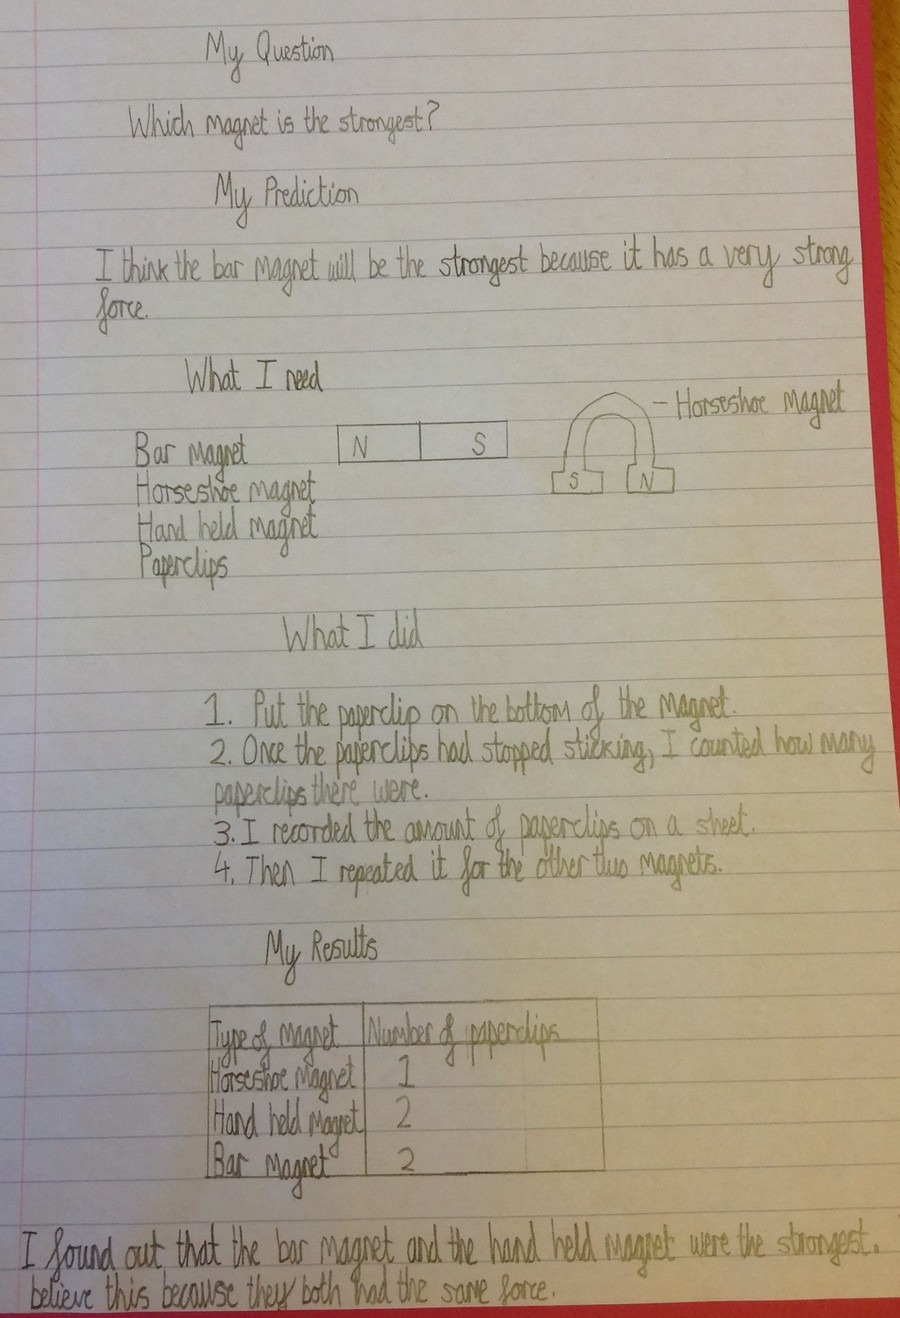 My Question
Which magnet is the strongest?
My Prediction
I think the bar magnet will be the strongest because it has a very strong
force.
What I need
Horseshoe Magnet
Bar Magnet
N S
Horseshoe magnet
S N
Hand held magnet
Paperclips
What I did
1. Put the paperclip on the bottom of the magnet.
2. Once the paperclips had stopped sticking, I counted how many
paperclips there were.
3. I recorded the amount of paperclips on a sheet.
4. Then I repeated it for the other two magnets.
My Results
Type of Magnet Number of paperclips
Horseshoe Magnet 1
Hand held Magnet 2
Bar Magnet 2
I found out that the bar magnet and the hand held magnet were the strongest.
believe this because they both had the same force.